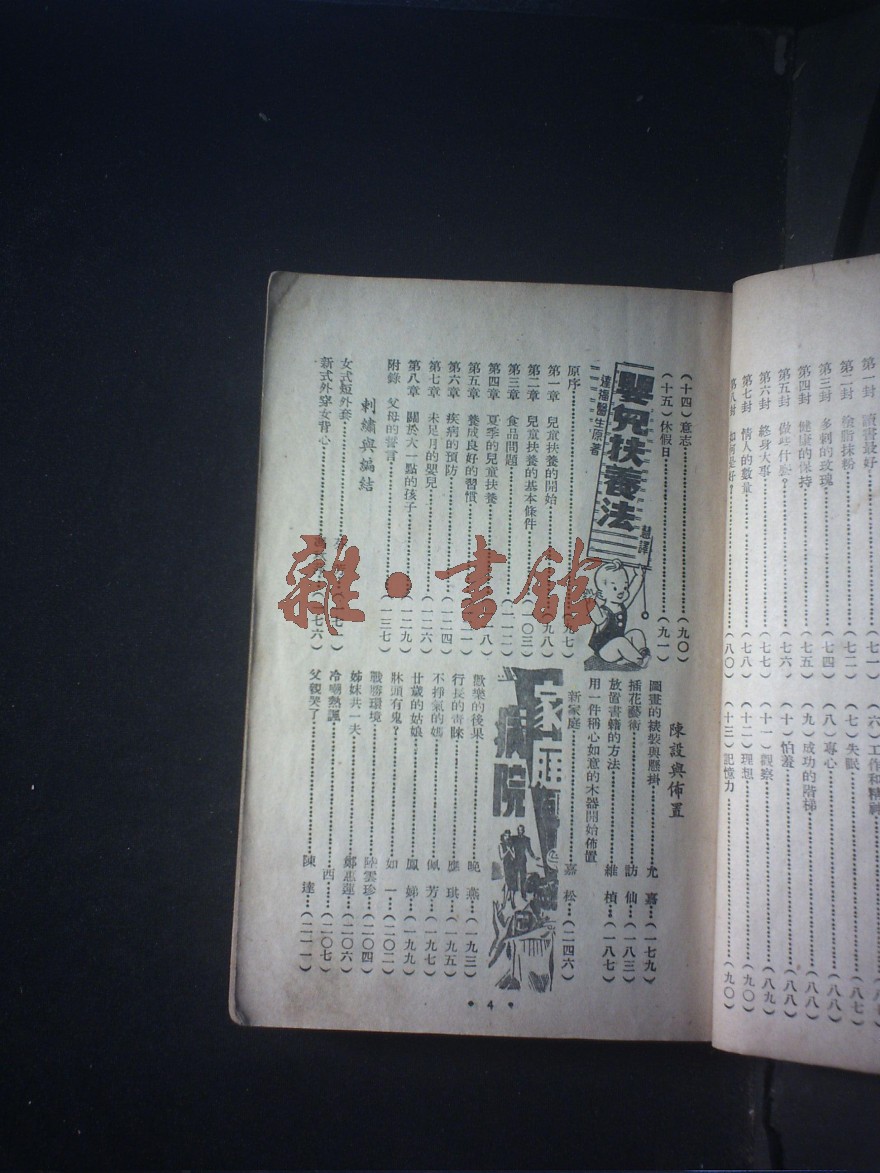 第一封 讀書最好……(七一)
第三封 多刺的玫瑰……(七四)
第四封 健康的保持……(七五)
第五封 做些什麼?……(七六)
第六封 終身大事……(七七)
第七封 情人的數量……(七八)
第八封 如何是好?……(八〇)
(七)失眠……(八七)
(八)專心……(八八)
(九)成功的階梯……(八八)
(十)怕羞……(八八)
(十一)觀察……(八九)
(十二)理想……(九〇)
(十三)記憶力……(九〇)
(十四)意志……(九〇)
(十五)休假日……(九一)
嬰兒扶養法
原序……九七)
第一章 兒童扶養的開始……九八)
第二章 兒童扶養的基本條件……〇三)
第三章 食品問題……
第四章 夏季的兒童扶養……八)
第五章 養成良好的習慣……
第六章 疾病的預防……(一二四)
第七章 未足月的嬰兒……(一二六)
第八章 關於大一點的孩子……(一二九)
附錄 父母的誓言……(一三七)
刺繡與編結
女式短外套……七一)
新式外穿女背心……七六)
陳設與佈置
圖畫的裱裝與懸掛……尤 嘉…(一七九)
插花藝術……訪 仙…(一八三)
放置書籍的方法……維 楨…(一八七)
用一件稱心如意的木器開始佈置
新家庭……嘉 松…(二四六)
家庭病院
歡樂的後果……晚 燕…(一九三)
行長的青睞……應 琪…(一九五)
不掙氣的媽……佩 芳…(一九七)
廿歲的姑娘……鳳 娣…(一九九)
牀頭有鬼?……如 一…(二〇二)
戰勝環境……陸雲珍…(二〇四)
姊妹共一夫……鄭惠蓮…(二〇六)
冷嘲熱諷……西…(二〇七)
父親笑了……陳 達…(二一一)
• 4 •
雜·書館